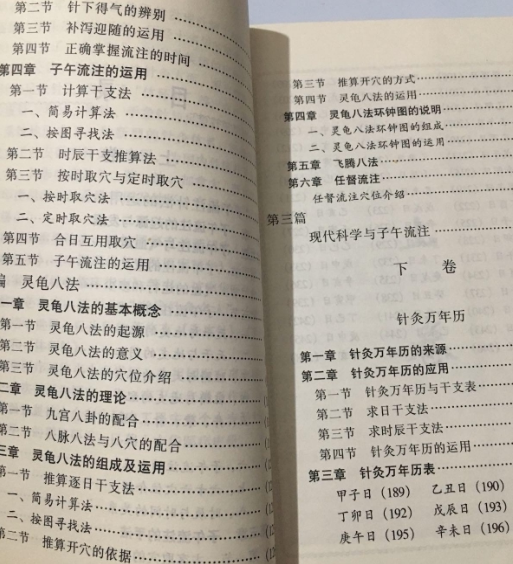 第二节 针下得气的辨别
第三节 补泻迎随的运用
第四节 正确掌握流注的时间
第四章 子午流注的运用
第一节 计算干支法
一、简易计算法
二、按图寻找法
第二节 时辰干支推算法
第三节 按时取穴与定时取穴
一、按时取穴法
二、定时取穴法
第四节 合日互用取穴
第五节 子午流注的运用
编 灵龟八法
一章 灵龟八法的基本概念
第一节 灵龟八法的起源
第二节 灵龟八法的意义
第三节 灵龟八法的穴位介绍
二章 灵龟八法的理论
第一节 九宫八卦的配合
第二节 八脉八法与八穴的配合
三章 灵龟八法的组成及运用
第一节 推算逐日干支法
一、简易计算法
二、按图寻找法
第二节 推算开穴的依据
第三节 推算开穴的方式
第四节 灵龟八法的运用
第四章 灵龟八法环钟图的说明
一、灵龟八法环钟图的组成
二、灵龟八法环钟图的运用
第五章 飞腾八法
第六章 任督流注
任督流注穴位介绍
第三篇
现代科学与子午流注
下 卷
针灸万年历
第一章 针灸万年历的来源
第二章 针灸万年历的应用
第一节 针灸万年历与干支表
第二节 求日干支法
第三节 求时辰干支法
第四节 针灸万年历的运用
第三章 针灸万年历表
甲子日（189） 乙丑日（190）
丁卯日（192） 戊辰日（193）
庚午日（195） 辛未日（196）